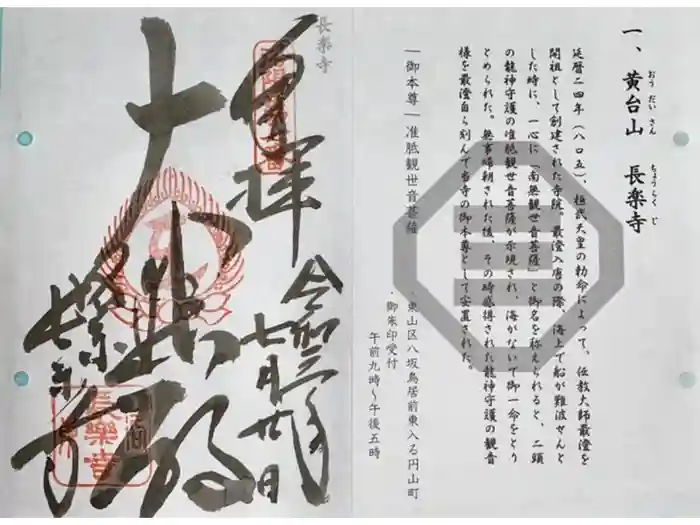 一、黄台山　長楽寺
おうだいさん　ちょうらくじ
延暦二四年（八〇五）、桓武天皇の勅命によって、伝教大師最澄を
開祖として創建された寺院。最澄入唐の際、海上で船が難波せんと
した時に、一心に「南無観世音菩薩」と御名を称えられると、二頭
の龍神守護の准胝観世音菩薩が示現され、海がないで御一命をとり
とめられた。無事帰朝された後、その時感得された龍神守護の観音
様を最澄自ら刻んで当寺の御本尊として安置された。
―御本尊―准胝観世音菩薩
・東山区八坂鳥居前東入る円山町
・御朱印受付
午前九時～午後五時
長楽寺
奉拝
令和三年
七月廿日
大悲殿
長楽寺